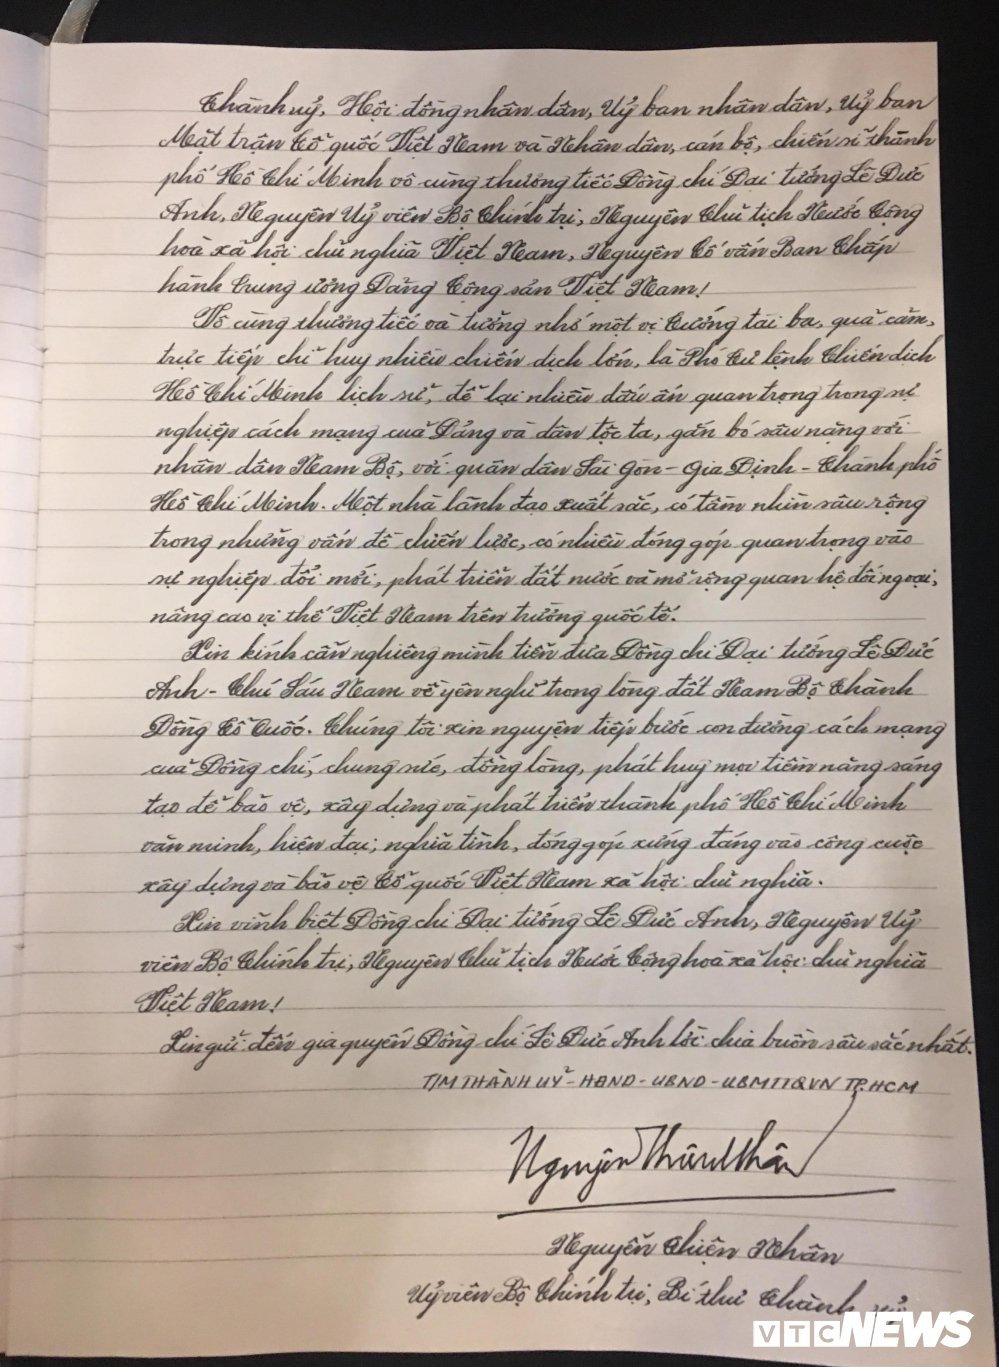 Thành uỷ, Hội đồng nhân dân, Uỷ ban nhân dân, Uỷ ban
Mặt trận Tổ quốc Việt Nam và Nhân dân, cán bộ, chiến sĩ thành
phố Hồ Chí Minh vô cùng thương tiếc Đồng chí Đại tướng Lê Đức
Anh, Nguyên Uỷ viên Bộ Chính trị, Nguyên Chủ tịch Nước Cộng
hoà xã hội chủ nghĩa Việt Nam, Nguyên Cố vấn Ban Chấp
hành Trung ương Đảng Cộng sản Việt Nam!
Vô cùng thương tiếc và tưởng nhớ một vị Tướng tài ba, quả cảm,
trực tiếp chỉ huy nhiều chiến dịch lớn, là Phó Tư lệnh Chiến dịch
Hồ Chí Minh lịch sử, để lại nhiều dấu ấn quan trọng trong sự
nghiệp cách mạng của Đảng và dân tộc ta, gắn bó sâu nặng với
nhân dân Nam Bộ, với quân dân Sài Gòn - Gia Định - Thành phố
Hồ Chí Minh. Một nhà lãnh đạo xuất sắc, có tầm nhìn sâu rộng
trong những vấn đề chiến lược, có nhiều đóng góp quan trọng vào
sự nghiệp đổi mới, phát triển đất nước và mở rộng quan hệ đối ngoại,
nâng cao vị thế Việt Nam trên trường quốc tế.
Xin kính cẩn nghiêng mình tiễn đưa Đồng chí Đại tướng Lê Đức
Anh - Chú Sáu Nam về yên nghỉ trong lòng đất Nam Bộ Thành
Đồng Tổ Quốc. Chúng tôi xin nguyện tiếp bước con đường cách mạng
của Đồng chí, chung sức, đồng lòng, phát huy mọi tiềm năng sáng
tạo để bảo vệ, xây dựng và phát triển thành phố Hồ Chí Minh
văn minh, hiện đại, nghĩa tình, đóng góp xứng đáng vào công cuộc
xây dựng và bảo vệ Tổ quốc Việt Nam xã hội chủ nghĩa.
Xin vĩnh biệt Đồng chí Đại tướng Lê Đức Anh, Nguyên Uỷ
viên Bộ Chính trị, Nguyên Chủ tịch Nước Cộng hoà xã hội chủ nghĩa
Việt Nam!
Xin gửi đến gia quyến Đồng chí Lê Đức Anh lời chia buồn sâu sắc nhất.
T/M THÀNH UỶ - HĐND - UBND - UBMTTQVN TP.HCM
Nguyễn Thiện Nhân
Nguyễn Thiện Nhân
Uỷ viên Bộ Chính trị, Bí thư Thành uỷ
VTC NEWS